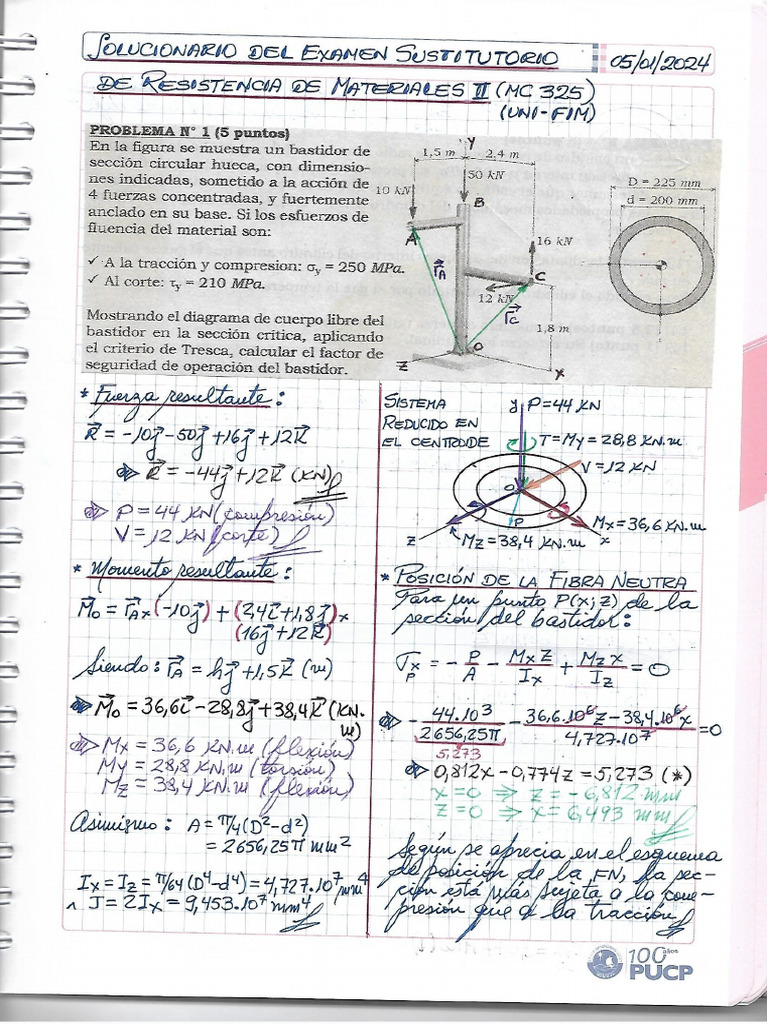 SOLUCIONARIO DEL EXAMEN SUSTITUTORIO
05/01/2024
DE RESISTENCIA DE MATERIALES II (MC 325)
(UNI-FIM)
PROBLEMA N° 1 (5 puntos)
En la figura se muestra un bastidor de
sección circular hueca, con dimensio-
nes indicadas, sometido a la acción de
4 fuerzas concentradas, y fuertemente
anclado en su base. Si los esfuerzos de
fluencia del material son:
✓ A la tracción y compresion: σy = 250 MPa.
✓ Al corte: τy = 210 MPa.
Mostrando el diagrama de cuerpo libre del
bastidor en la sección crítica, aplicando
el criterio de Tresca, calcular el factor de
seguridad de operación del bastidor.
y
1,5 m
2,4 m
50 kN
10 kN
B
A
16 kN
r⃗A
C
12 kN
r⃗C
1,8 m
O
z
x
D = 225 mm
d = 200 mm
* Fuerza resultante:
R⃗ = -10j - 50j + 16j + 12k
⇒ R⃗ = -44j + 12k (KN)
⇒ P = 44 KN (compresión)
V = 12 KN (corte)
* Momento resultante:
M⃗o = r⃗A x (-10j) + (2,4i + 1,8j) x
(16j + 12k)
Siendo: r⃗A = hj + 1,5k (m)
⇒ M⃗o = 36,6i - 28,8j + 38,4k (KN.
m)
⇒ Mx = 36,6 KN.m (flexión)
My = 28,8 KN.m (torsión)
Mz = 38,4 KN.m (flexión)
Asimismo: A = π/4(D²-d²)
= 2656,25π mm²
Ix = Iz = π/64(D⁴-d⁴) = 4,727.10⁷ mm⁴
∧ J = 2Ix = 9,453.10⁷ mm⁴
SISTEMA
REDUCIDO EN
EL CENTROIDE
y P = 44 KN
T = My = 28,8 KN.m
V = 12 KN
O
P
Mx = 36,6 KN.m
z
Mz = 38,4 KN.m
x
* POSICIÓN DE LA FIBRA NEUTRA
Para un punto P(x;z) de la
sección del bastidor:
σxP = - P/A - Mx z/Ix + Mz x/Iz = 0
⇒ - 44.10³/2656,25π - 36,6.10⁶z - 38,4.10⁶x/4,727.10⁷ = 0
5,273
⇒ 0,812x - 0,774z = 5,273 (*)
x = 0 ⇒ z = -6,812 mm
z = 0 ⇒ x = 6,493 mm
Según se aprecia en el esquema
de posición de la FN, la sec-
ción está más sujeta a la com-
presión que a la tracción.
100 años
PUCP